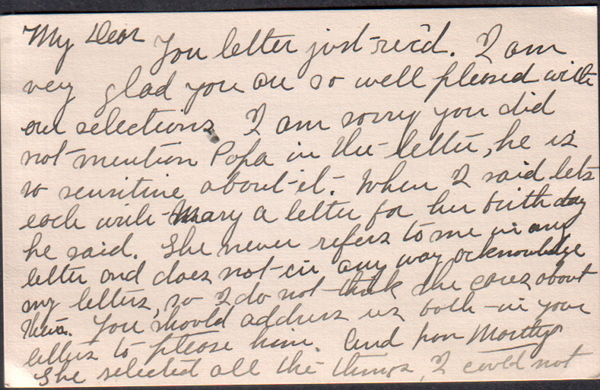 My Dear
You letter just rec'd. I am
very glad you are so well pleased with
our selections. I am sorry you did
not mention Papa in the letter, he is
so sensitive about it. When I said lets
each write Mary a letter for her birthday
he said. She never refers to me in any
letter and does not in any way acknowledge
my letters, so I do not think she cares about
them. You should address us both in your
letters to please him. And poor Monty
She selected all the things, I could not